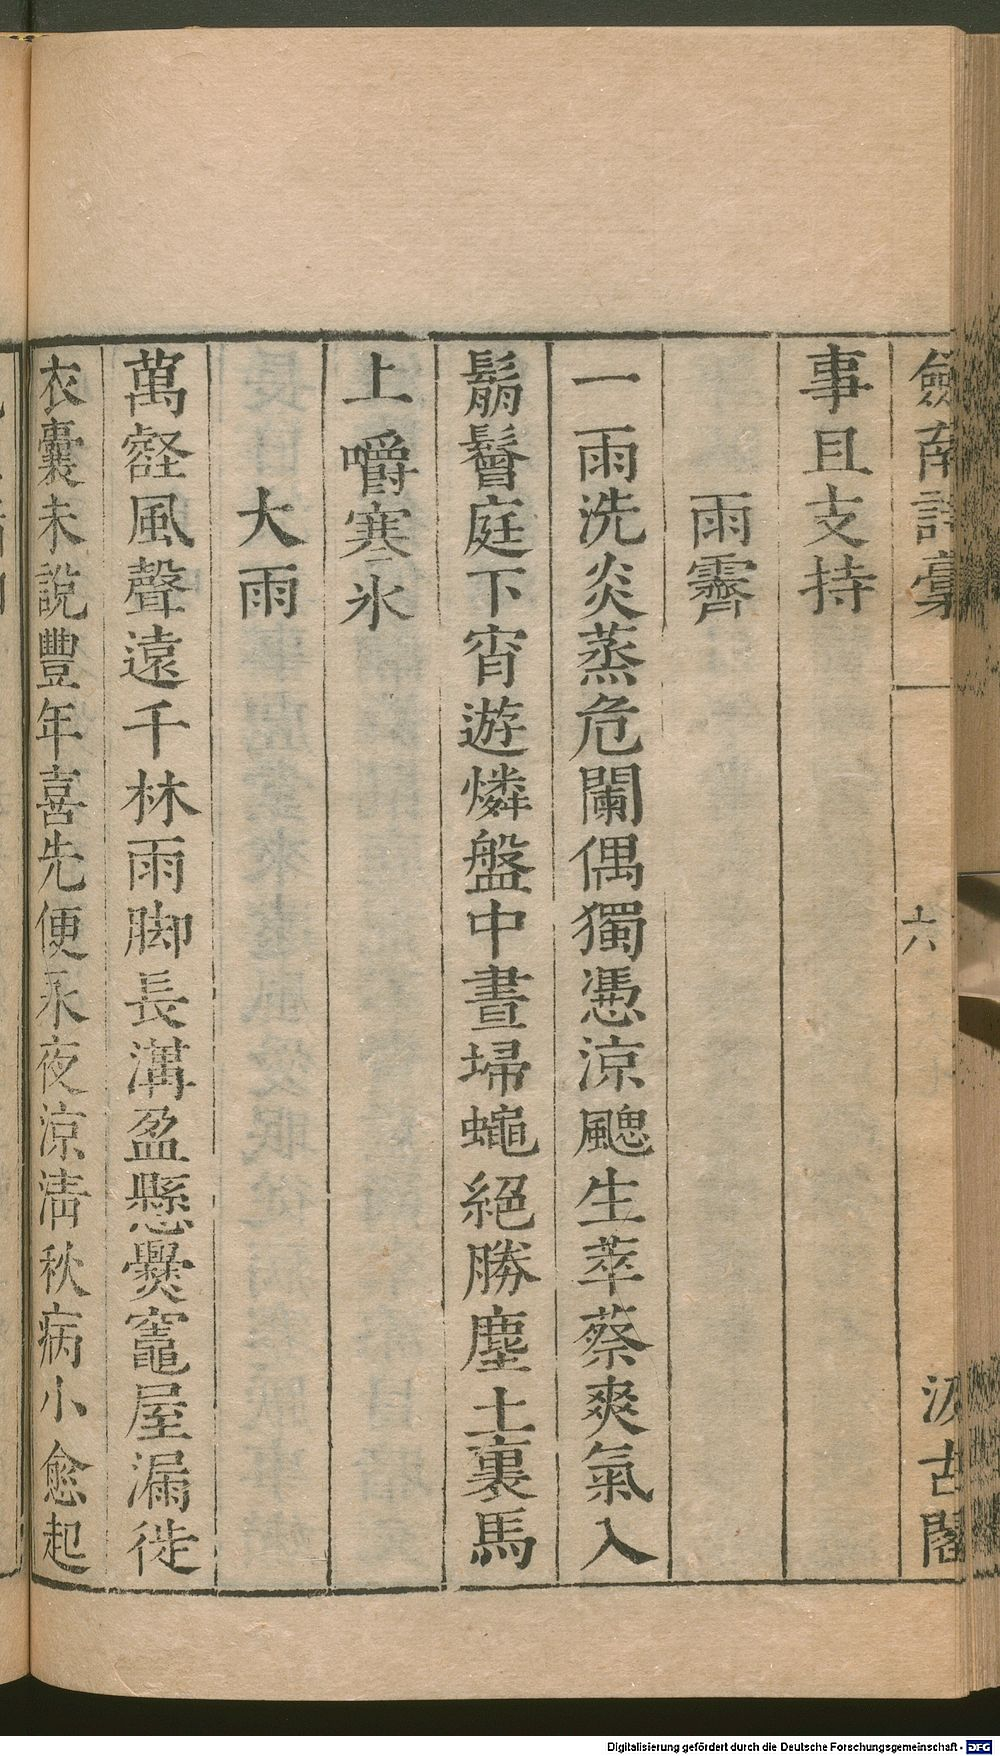 劒南詩稾
六
汲古閣
事且支持
雨霽
一雨洗炎蒸危闌偶獨憑涼颸生萃蔡爽氣入
鬅鬙庭下宵遊燐盤中晝埽蠅絕勝塵土裏馬
上嚼寒氷
大雨
萬壑風聲遠千林雨脚長溝盈懸爨竈屋漏徙
衣囊未說豐年喜先便永夜涼淸秋病小愈起
Digitalisierung gefördert durch die Deutsche Forschungsgemeinschaft - DFG